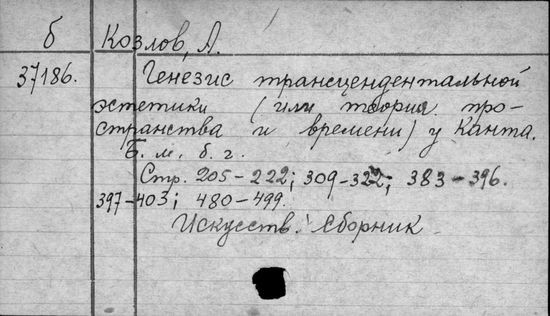 б Козлов, А.
37186. Генезис трансцендентальной
эстетики (или теория про-
странства и времени) у Канта.
Б. м., б. г.
Стр. 205-222; 309-322; 383-396.
397-403; 480-499.
Искусств. Сборник